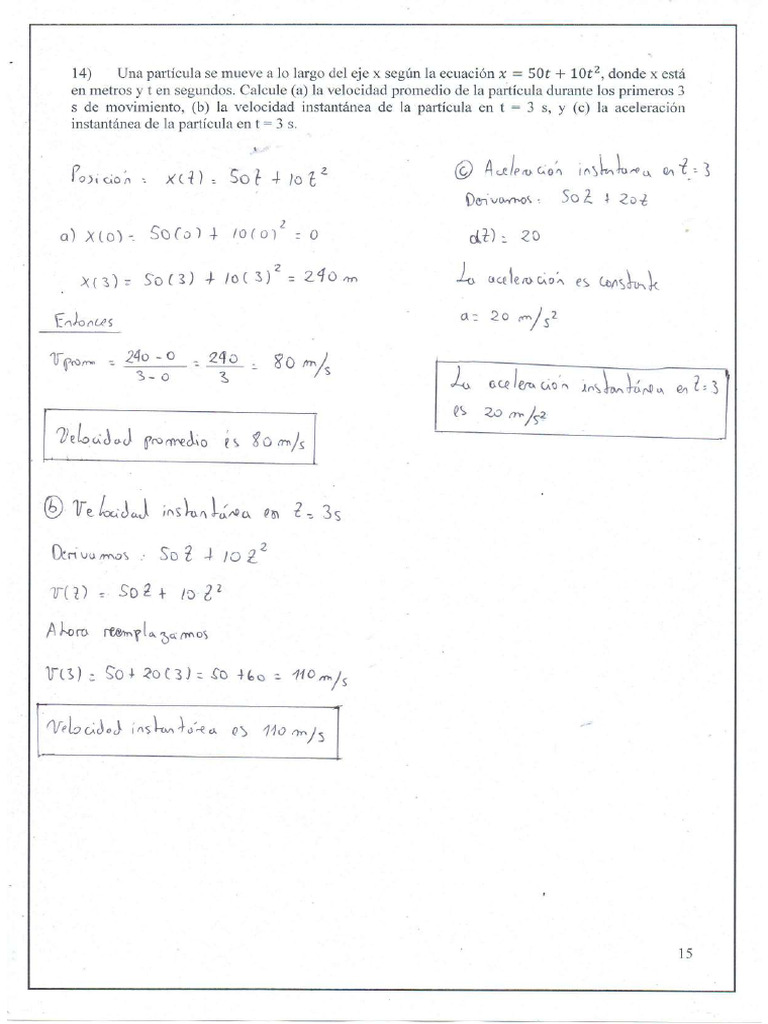 14) Una partícula se mueve a lo largo del eje x según la ecuación x = 50t + 10t², donde x está
en metros y t en segundos. Calcule (a) la velocidad promedio de la partícula durante los primeros 3
s de movimiento, (b) la velocidad instantánea de la partícula en t = 3 s, y (c) la aceleración
instantánea de la partícula en t = 3 s.
Posición : x(t) = 50t + 10t²
a) x(0) = 50(0) + 10(0)² = 0
x(3) = 50(3) + 10(3)² = 240 m
Entonces
Vprom = 240 - 0 / 3 - 0 = 240 / 3 = 80 m/s
Velocidad promedio es 80 m/s
b) Velocidad instantánea en t = 3s
Derivamos : 50t + 10t²
V(t) = 50t + 10t²
Ahora reemplazamos
V(3) = 50 + 20(3) = 50 + 60 = 110 m/s
Velocidad instantárea es 110 m/s
c) Aceleración instantarea en t = 3
Derivamos : 50t + 20t
a(t) = 20
La aceleración es constante
a = 20 m/s²
La aceleración instantánea en t = 3
es 20 m/s²
15